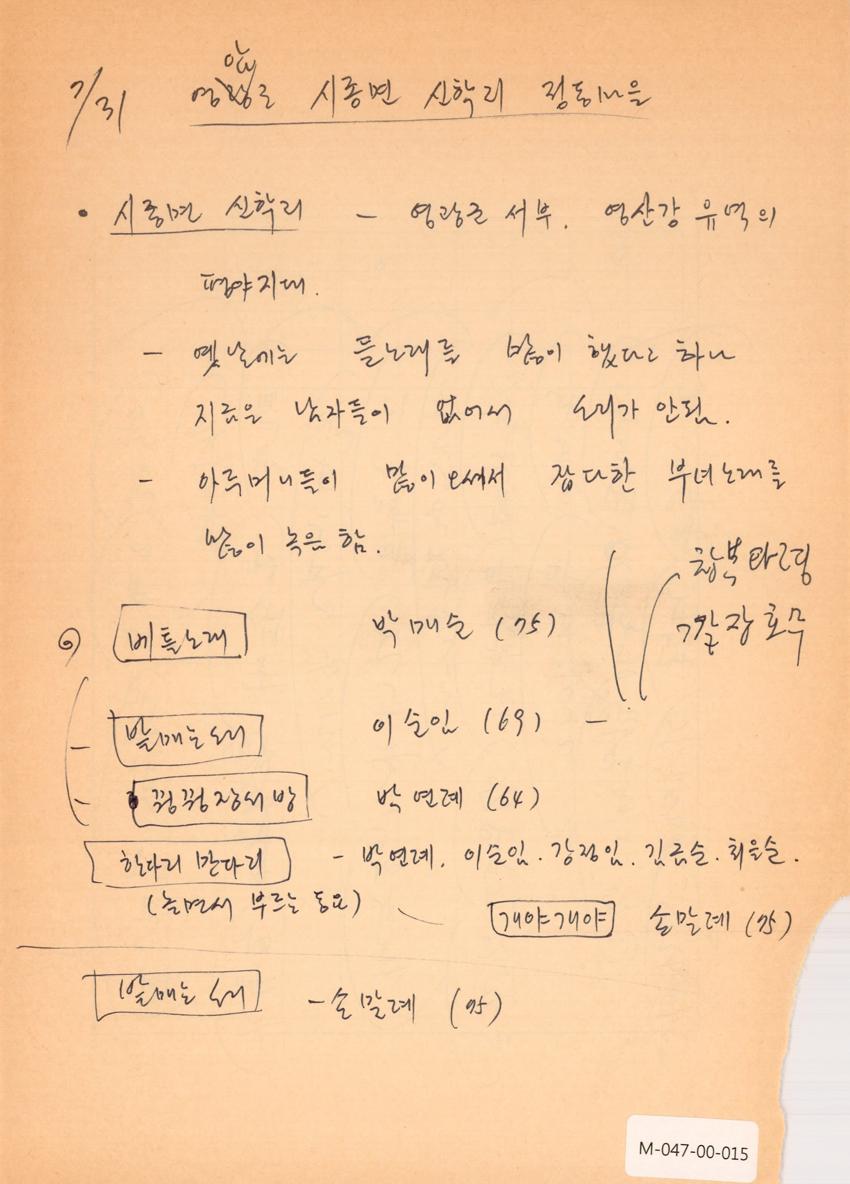 7/31 영암군 시종면 신학리 정동마을
• 시종면 신학리 - 영광군 서부. 영산강 유역의
평야지대.
- 옛날에는 들노래를 많이 했다고 하나
지금은 남자들이 없어서 소리가 안됨.
- 아주머니들이 많이 오셔서 잡다한 부녀노래를
많이 녹음함.
흥부타령
① 베틀노래 박매순 (75)
- 밭매는소리 이순임 (69) -
- 꿩꿩장서방 박연례 (64)
한다리 만다리 - 박연례. 이순임. 강정임. 김금순. 최을순.
(놀면서 부르는 동요)
개야개야 손말례 (75)
밭매는 소리 - 손말례 (75)
M-047-00-015